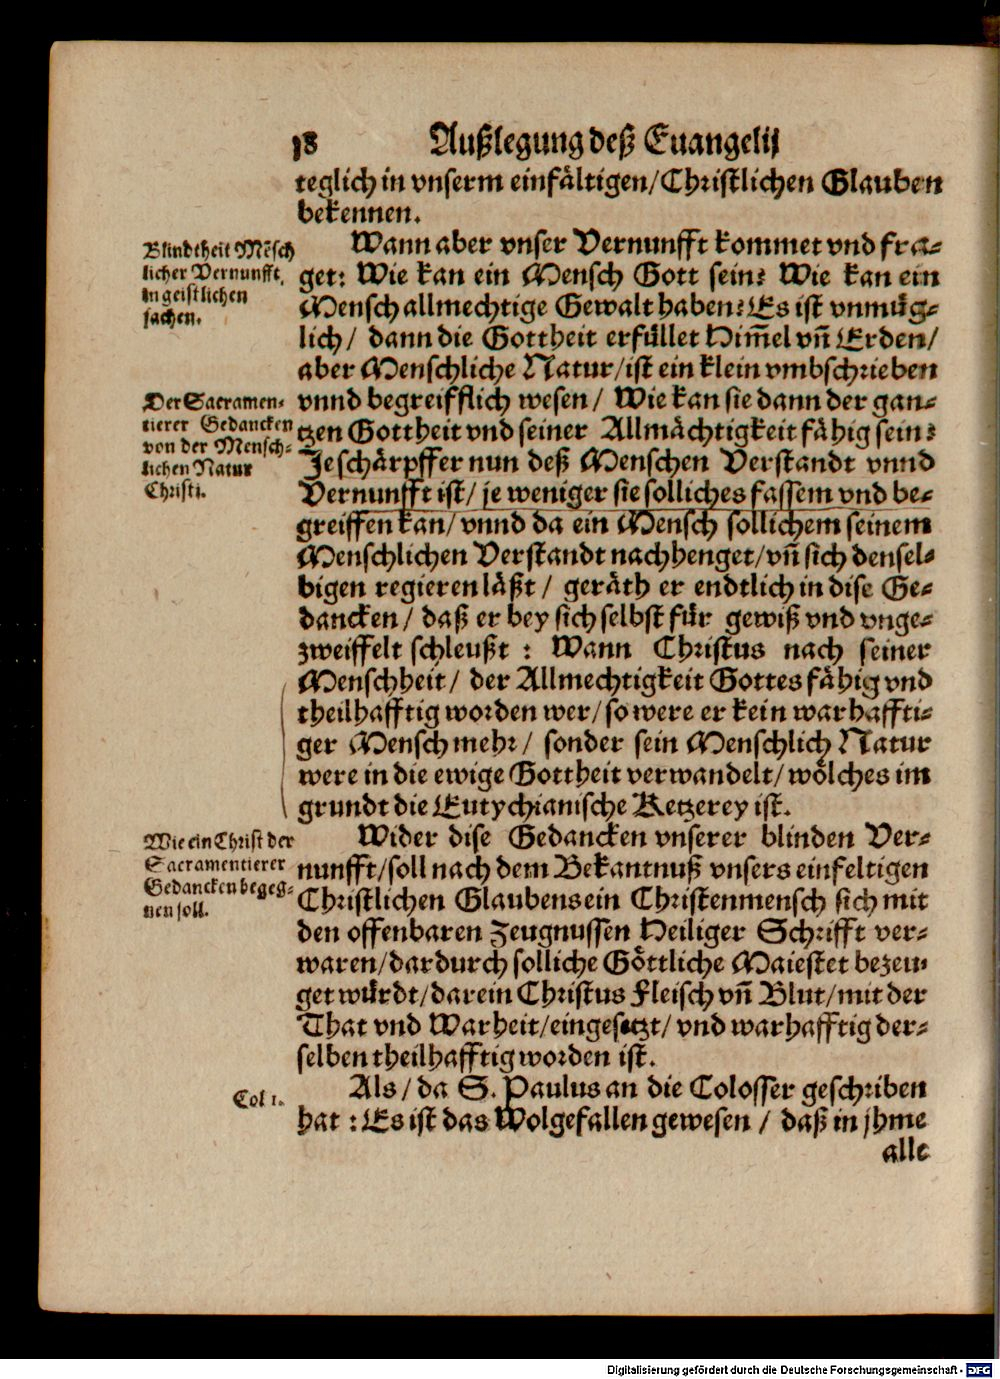 18 Außlegung deß Euangelij
teglich in vnserm einfältigen/Christlichen Glauben
bekennen.
Blindtheit Mẽsch
licher Vernunfft,
in geistlichen
sachen.
Wann aber vnser Vernunfft kommet vnd fra-
get: Wie kan ein Mensch Gott sein? Wie kan ein
Mensch allmechtige Gewalt haben? Es ist vnmüg-
lich/ dann die Gottheit erfüllet Him̃el vñ Erden/
aber Menschliche Natur/ist ein klein vmbschrieben
Der Sacramen-
tierer Gedancken
von der Mensch-
lichen Natur
Christi.
vnnd begreifflich wesen/ Wie kan sie dann der gan-
tzen Gottheit vnd seiner Allmächtigkeit fähig sein?
Je schärpffer nun deß Menschen Verstandt vnnd
Vernunfft ist/ je weniger sie solliches fassem vnd be-
greiffen kan/ vnnd da ein Mensch sollichem seinem
Menschlichen Verstandt nachhenget/vñ sich densel-
bigen regieren läßt/ geräth er endtlich in dise Ge-
dancken/ daß er bey sich selbst für gewiß vnd vnge-
zweiffelt schleußt: Wann Christus nach seiner
Menschheit/ der Allmechtigkeit Gottes fähig vnd
theilhafftig worden wer/so were er kein warhaffti-
ger Mensch mehr/ sonder sein Menschlich Natur
were in die ewige Gottheit verwandelt/wölches im
grundt die Eutychianische Ketzerey ist.
Wie ein Christ der
Sacramentierer
Gedancken begeg-
nen soll.
Wider dise Gedancken vnserer blinden Ver-
nunfft/soll nach dem Bekantnuß vnsers einfeltigen
Christlichen Glaubens ein Christenmensch sich mit
den offenbaren Zeugnussen Heiliger Schrifft ver-
waren/dardurch solliche Göttliche Maiestet bezeu-
get würdt/darein Christus Fleisch vñ Blut/mit der
That vnd Warheit/eingesetzt/ vnd warhafftig der-
selben theilhafftig worden ist.
Col 1.
Als/da S. Paulus an die Colosser geschriben
hat: Es ist das Wolgefallen gewesen/ daß in jhme
alle
Digitalisierung gefördert durch die Deutsche Forschungsgemeinschaft - DFG